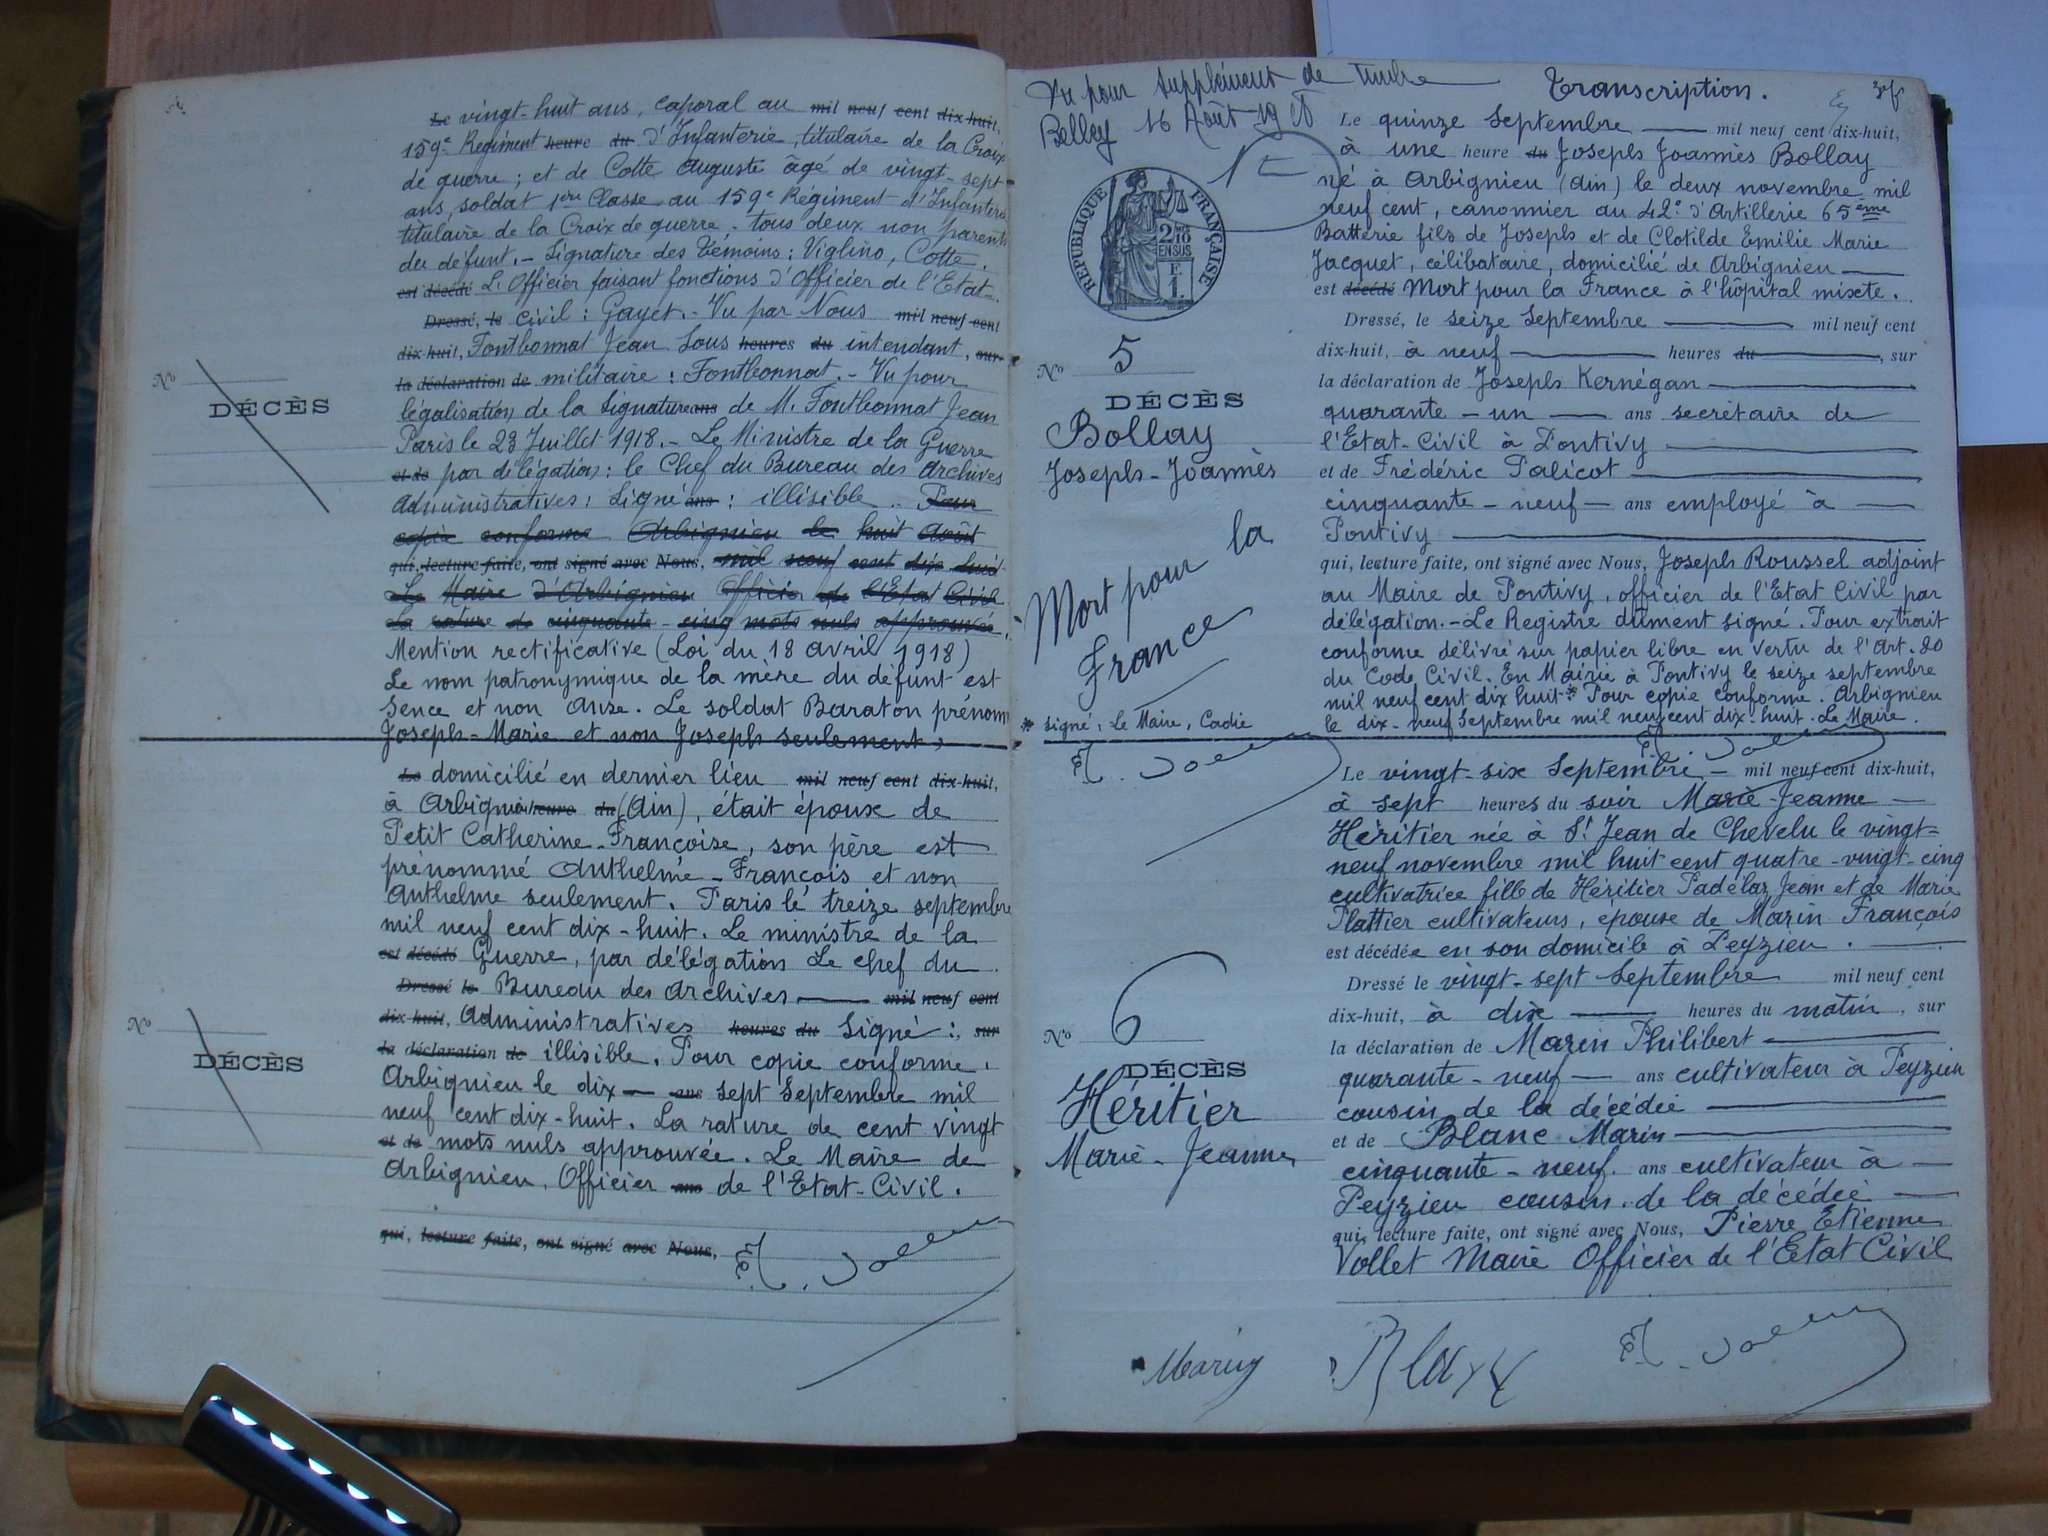 Le vingt-huit ans, caporal au mil neuf cent dix-huit,
159e Régiment heure du d'Infanterie, titulaire de la Croix
de guerre; et de Cotte Auguste âgé de vingt-sept
ans, soldat 1ere Classe au 159e Régiment d'Infanterie
titulaire de la Croix de guerre. tous deux non parents
du défunt. - Signature des témoins: Viglino, Cotte.
est décédé L'Officier faisant fonctions d'Officier de l'Etat-
Dressé, le Civil: Gayet. - Vu par Nous mil neuf cent
dix-huit, Fontbonnat Jean Sous heures du intendant, sur
la déclaration de militaire: Fontbonnat. - Vu pour
légalisation de la Signature ans de M. Fontbonnat Jean
Paris le 23 Juillet 1918. - Le Ministre de la Guerre
et de par délégation: le Chef du Bureau des Archives
Administratives: Signé ans: illisible. Pour
copie conforme Arbignieu le huit Août
qui, lecture faite, ont signé avec Nous, mil neuf cent dix huit
Le Maire d'Arbignieu Officier de l'Etat Civil
La rature de cinquante-cinq mots nuls approuvée.
Mention rectificative (Loi du 18 avril 1918)
Le nom patronymique de la mère du défunt est
Sence et non Anse. Le soldat Baraton prénom
Joseph-Marie et non Joseph seulement,
No
DÉCÈS
Le domicilié en dernier lieu mil neuf cent dix-huit,
à Arbignieu heure du (Ain), était époux de
Petit Catherine-Françoise, son père est
prénommé Anthelme-François et non
Anthelme seulement. Paris le treize septembre
mil neuf cent dix-huit. Le ministre de la
est décédé Guerre, par délégation Le chef du
Dressé le Bureau des Archives mil neuf cent
dix-huit, Administratives heures du Signé: sur
la déclaration de illisible. Pour copie conforme.
Arbignieu le dix- ans sept Septembre mil
neuf cent dix-huit. La rature de cent vingt
et de mots nuls approuvée. Le Maire de
Arbignieu, Officier ans de l'Etat-Civil.
qui, lecture faite, ont signé avec Nous,
No
DÉCÈS
Vu pour supplément de timbre
Belley 16 Août 1918
RÉPUBLIQUE FRANÇAISE
2/10 EN SUS
F
1.
No 5
DÉCÈS
Bollay
Joseph-Joannès
Mort pour la
France
* signé: Le Maire, Cadie
Transcription.
Le quinze Septembre mil neuf cent dix-huit,
à une heure du Joseph Joannès Bollay
né à Arbignieu (Ain) le deux novembre mil
neuf cent, canonnier au 42e d'Artillerie 65ème
Batterie fils de Joseph et de Clotilde Emilie Marie
Jacquet, célibataire, domicilié de Arbignieu
est décédé Mort pour la France à l'hôpital mixte.
Dressé, le seize Septembre mil neuf cent
dix-huit, à neuf heures du, sur
la déclaration de Joseph Kernégan
quarante-un ans secrétaire de
l'Etat-Civil à Pontivy
et de Frédéric Palicot
cinquante-neuf ans employé à
Pontivy
qui, lecture faite, ont signé avec Nous, Joseph Roussel adjoint
au Maire de Pontivy, officier de l'Etat Civil par
délégation. - Le Registre dûment signé. Pour extrait
conforme délivré sur papier libre en vertu de l'Art. 80
du Code Civil. En Mairie à Pontivy le seize septembre
mil neuf cent dix huit * Pour copie conforme. Arbignieu
le dix-neuf Septembre mil neuf cent dix-huit. Le Maire.
No 6
DÉCÈS
Héritier
Marie-Jeanne
Le vingt-six Septembre mil neuf cent dix-huit,
à sept heures du soir Marie-Jeanne
Héritier née à St Jean de Chevelu le vingt-
neuf novembre mil huit cent quatre-vingt-cinq
cultivatrice fille de Héritier Padélaz Jean et de Marie
Plattier cultivateurs, épouse de Marin François
est décédée en son domicile à Peyzieu.
Dressé le vingt-sept Septembre mil neuf cent
dix-huit, à dix heures du matin, sur
la déclaration de Marin Philibert
quarante-neuf ans cultivateur à Peyzieu
cousin de la décédée
et de Blanc Marin
cinquante-neuf ans cultivateur à
Peyzieu cousin de la décédée
qui, lecture faite, ont signé avec Nous, Pierre Etienne
Vollet Maire Officier de l'Etat Civil
Marin Blanc